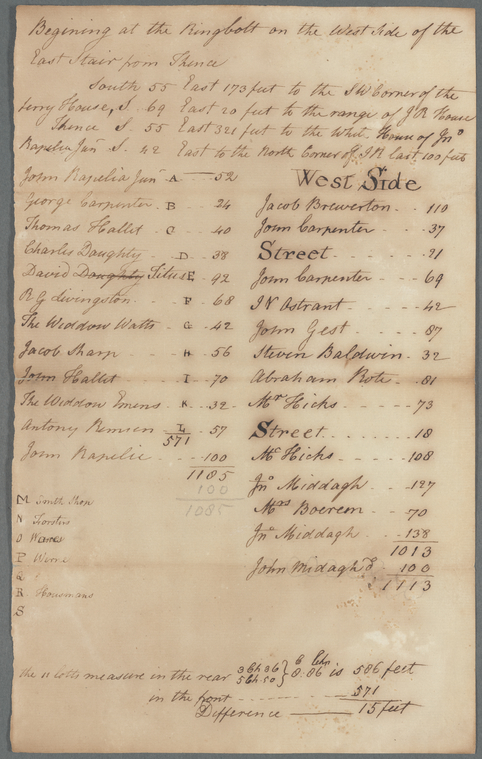 Begining at the Ringbolt on the West Side of the
East Stair from Thence
South 55 East 173 feet to the SW Corner of the
ferry House, S. 69 East 20 feet to the range of J R House
Thence S. 55 East 321 feet to the White House of Jno
Rapelia Junr S. 42 East to the North Corner of J R last. 100 feet
John Rapelia Junr A 52
George Carpenter B 24
Thomas Hallet C 40
Charles Doughty D 38
David Doughty Titus E 92
R G Livingston F 68
The Widdow Watts G 42
Jacob Sharp H 56
John Hallet I 70
The Widdow Emens K 32
Antony Remsen L 57
571
John Rapelie 100
1185
100
1085
M Smith Shop
N
O
P
Q
R Housmans
S
West Side
Jacob Brewerton 110
John Carpenter 37
Street 21
John Carpenter 69
J V Astrant 42
John Gest 87
Steven Baldwin 32
Abraham Rote 81
Mr Hicks 73
Street 18
Mr Hicks 108
Jno Middagh 127
Mrs Boerem 70
Jno Middagh 138
1013
John Midagh 100
1113
the 11 lotts measure in the rear 8.86 is 586 feet
in the front 571
Difference 15 feet